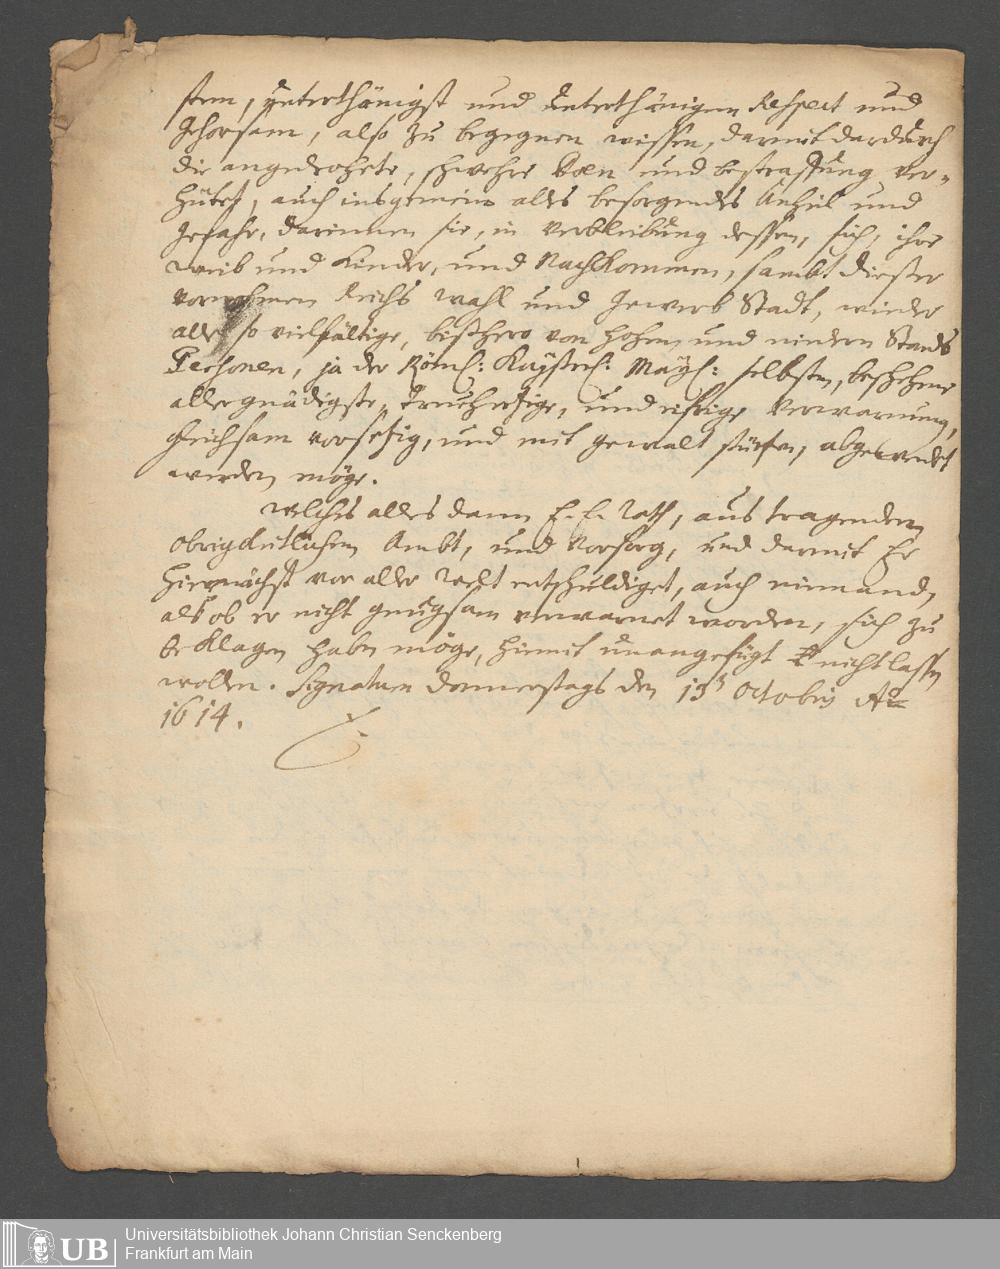 stem, unterthänigst und unterthänigen Respect und
Gehorsam, also zu begegnen wissen, damit dardurch
die angedrohete, schwehre Poen und bestraffung ver-
hütet, auch insgemein alles besorgendes Unheil und
gefahr, darinnen sie, in verbleibung dessen, sich, ihre
weib und Kinder, und Nachkommen, sambt dieser
vornehmen Reichs wahl und gewerb Stadt, wieder
alle so vielfältige, bißhero von hohen und niedern Stands
Persohnen, ja der Röml: Kaysterl: Mayl: selbsten, beschehene
allergnädigste, treuhertzige, und eifrige Verwarnung,
gleichsam vorsetzig, und mit gewalt stürtzen, abgewendet
werden möge.
welches alles dann E. E. Rath, aus tragendem
obrigkeitlichen Ambt, und Vorsorg, und damit Er
hiernächst vor aller Welt entschuldiget, auch niemand,
als ob er nicht gnugsam verwarnet worden, sich zu
beklagen haben möge, hiemit unangefügt nicht lassen
wollen. Signatum Donnerstags den 13t Octobris Ao
1614.
Universitätsbibliothek Johann Christian Senckenberg
Frankfurt am Main
UB